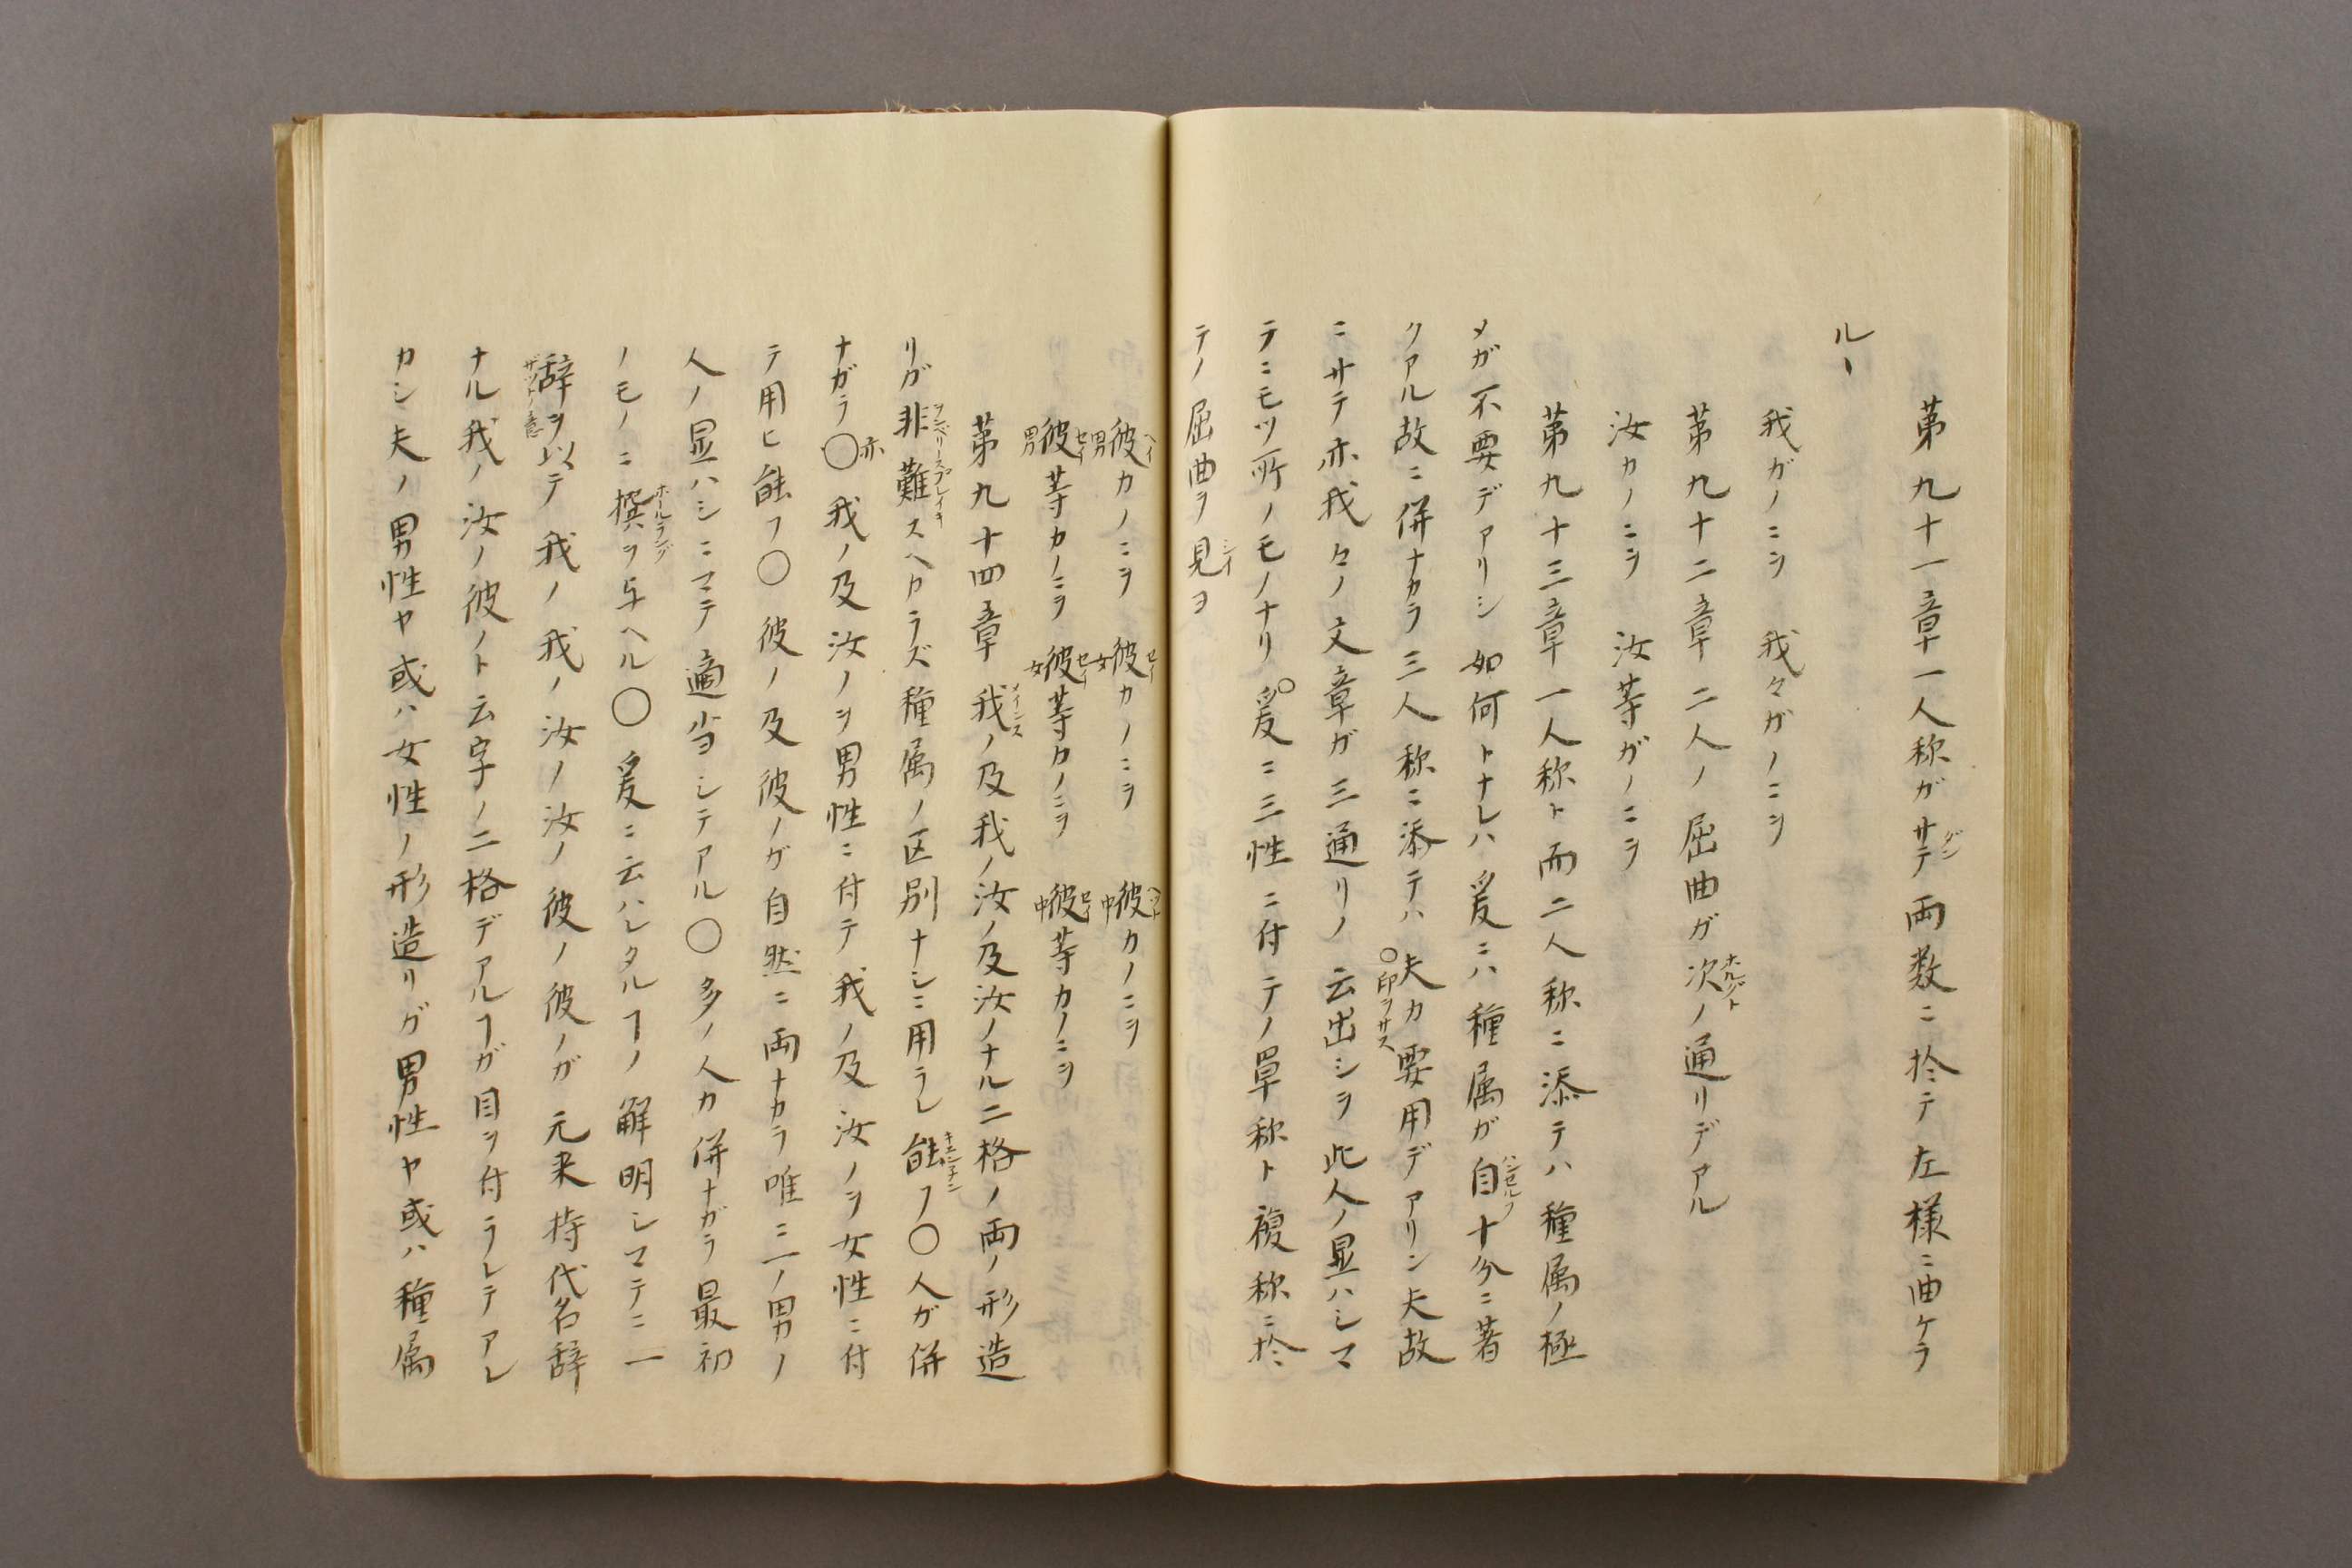 第九十一章一人称ガサテ両数ニ於テ左様ニ曲ケラ
ル丶
我ガノニヲ 我々ガノニヲ
第九十二章 二人ノ屈曲ガ次ノ通リデアル
汝カノニヲ 汝等ガノニヲ
第九十三章 一人称ト而二人称ニ添テハ種属ノ極
メガ不要デアリシ如何トナレハ爰ニハ種属ガ自十分ニ著
クアル故ニ併ナカラ三人称ニ添テハ夫カ要用デアリシ夫故
○印ヲサス
ニサテ亦我々ノ文章ガ三通リノ云出シヲ此人ノ显ハシマ
テニモツ所ノモノナリ○爰ニ三性ニ付テノ単称ト複称ニ於
テノ屈曲ヲ見ヨ
彼男カノニヲ 彼女カノニヲ 彼中カノニヲ
彼男等カノニヲ 彼女等カノニヲ 彼中等カノニヲ
第九十四章 我ノ及我ノ汝ノ及汝ノナル二格ノ両ノ形造
リガ非難スヘカラズ種属ノ区別ナシニ用ラレ能フ○人ガ併
ナガラ○亦我ノ及汝ノヲ男性ニ付テ我ノ及汝ノヲ女性ニ付
テ用ヒ能フ○彼ノ及彼ノガ自然ニ両ナカラ唯ニ一ノ男ノ
人ノ显ハシニマテ適当シテアル○多ノ人カ併ナガラ最初
ノモノニ撰ヲ与ヘル○爰ニ云ハレタルヿノ解明シマテニ一
辞ヲ以テ我ノ我ノ汝ノ汝ノ彼ノ彼ノガ元来持代名辞
ナル我ノ汝ノ彼ノト云字ノ二格デアルヿガ目ヲ付ラレテアレ
カシ夫ノ男性ヤ或ハ女性ノ形造リガ男性ヤ或ハ種属